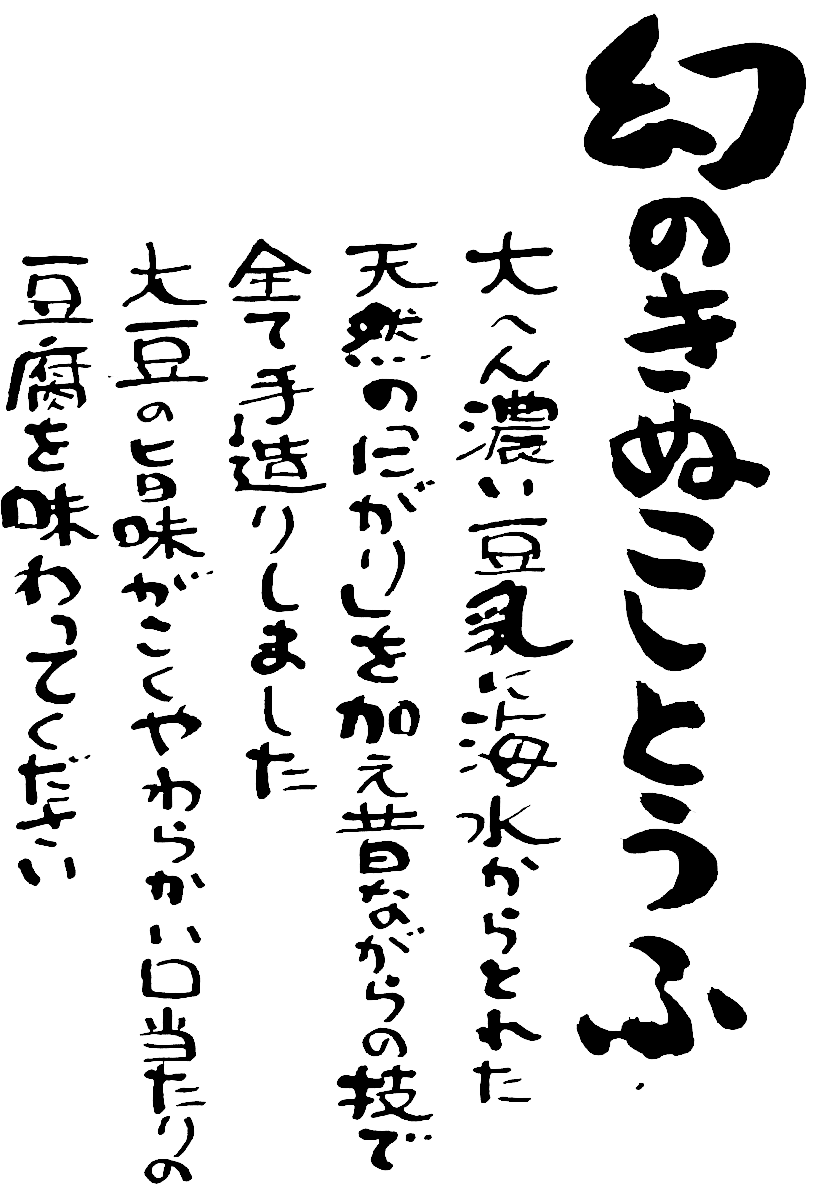 幻のきぬこしとうふ
大へん濃い豆乳に海水からとれた
天然の「にがり」を加え昔ながらの技で
全て手造りしました
大豆の旨味がこくやわらかい口当たりの
豆腐を味わってください